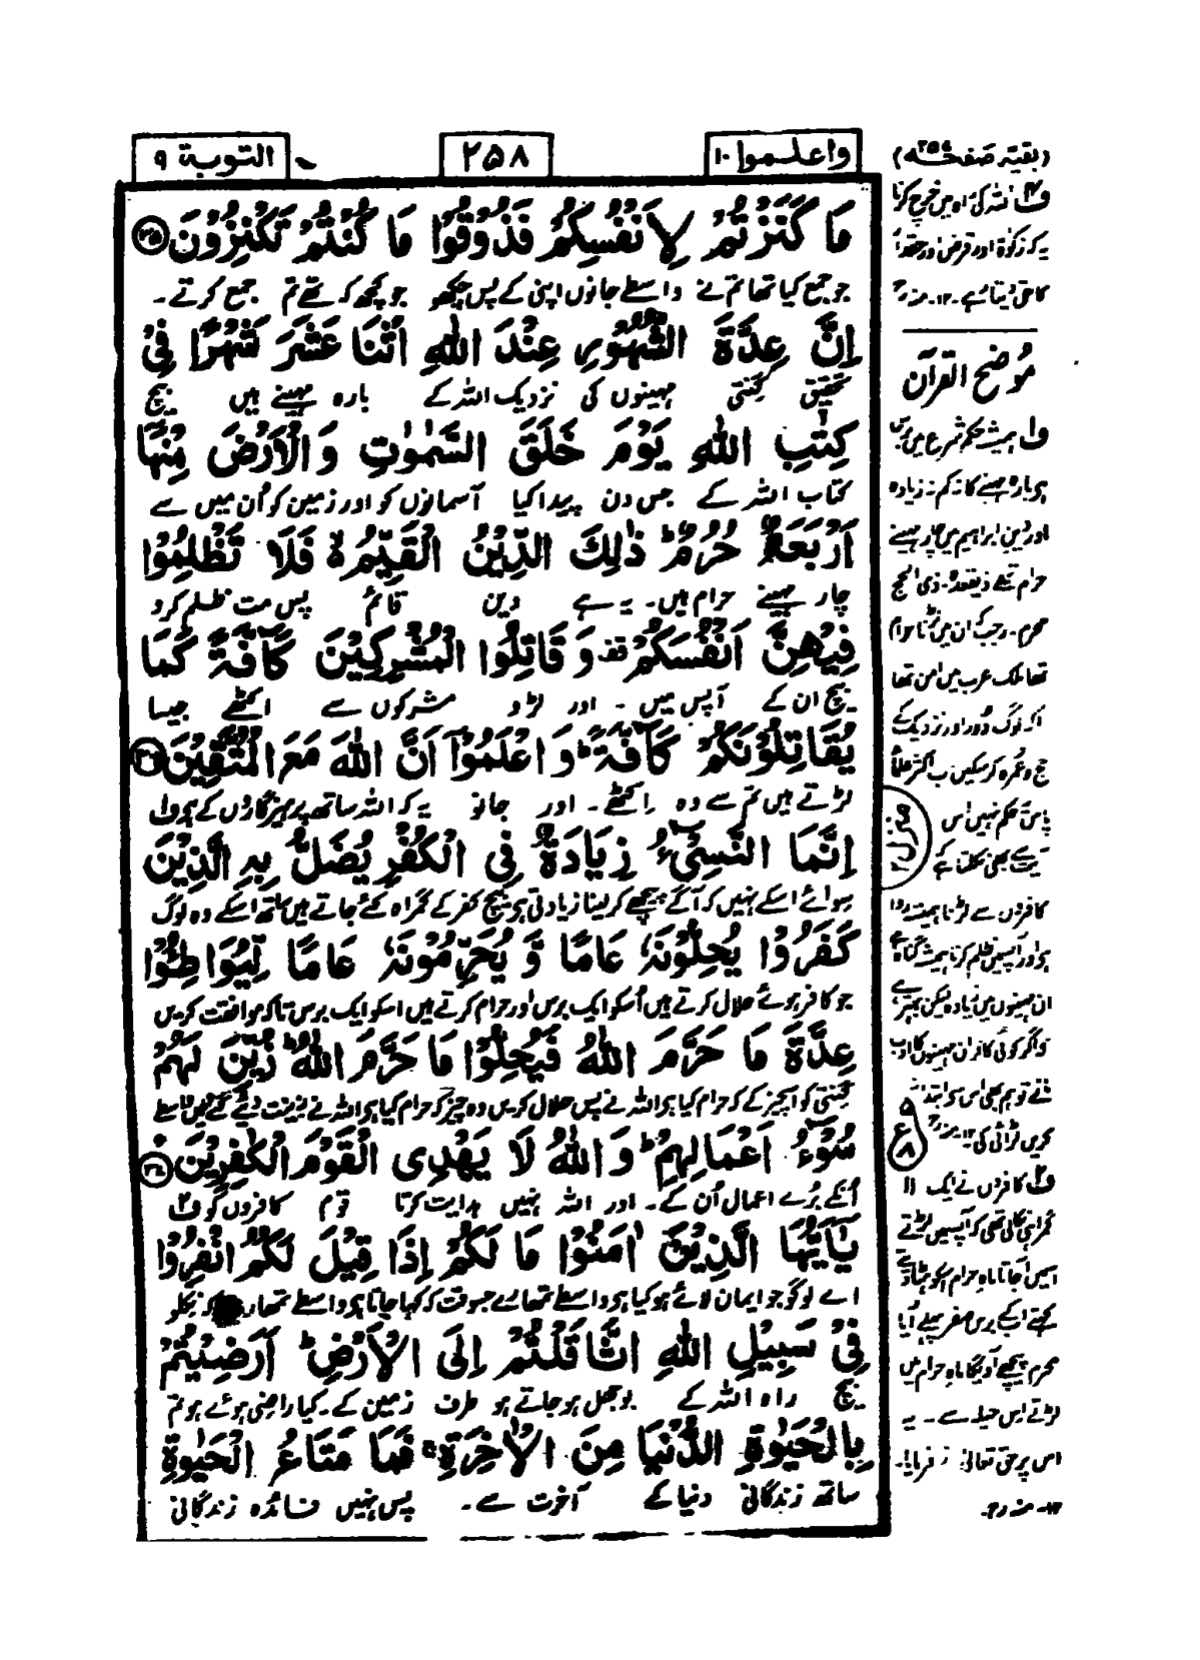 واعلموا ۱۰
۲۵۸
التوبة ۹
مَا كَنَزْتُمْ لِاَنْفُسِكُمْ فَذُوْقُوْا مَا كُنْتُمْ تَكْنِزُوْنَ ﴿۳۵﴾
جو جمع کیا تھا تم نے واسطے جانوں اپنی کے پس چکھو جو کچھ کہ تھے تم جمع کرتے۔
اِنَّ عِدَّةَ الشُّهُوْرِ عِنْدَ اللّٰهِ اثْنَا عَشَرَ شَهْرًا فِيْ
تحقیق گنتی مہینوں کی نزدیک اللہ کے بارہ مہینے ہیں بیچ
كِتٰبِ اللّٰهِ يَوْمَ خَلَقَ السَّمٰوٰتِ وَالْاَرْضَ مِنْهَا
کتاب اللہ کے جس دن پیدا کیا آسمانوں کو اور زمین کو اُن میں سے
اَرْبَعَةٌ حُرُمٌ ؕ ذٰلِكَ الدِّيْنُ الْقَيِّمُ ۙ فَلَا تَظْلِمُوْا
چار مہینے حرام ہیں۔ یہ ہے دین قائم پس مت ظلم کرو
فِيْهِنَّ اَنْفُسَكُمْ قف وَقَاتِلُوا الْمُشْرِكِيْنَ كَآفَّةً كَمَا
بیچ ان کے آپس میں۔ اور لڑو مشرکوں سے اکٹھے جیسا
يُقَاتِلُوْنَكُمْ كَآفَّةً ؕ وَاعْلَمُوْٓا اَنَّ اللّٰهَ مَعَ الْمُتَّقِيْنَ ﴿۳۶﴾
لڑتے ہیں تم سے وہ اکٹھے۔ اور جانو یہ کہ اللہ ساتھ پرہیزگاروں کے ہے ف۱
اِنَّمَا النَّسِيْٓءُ زِيَادَةٌ فِي الْكُفْرِ يُضَلُّ بِهِ الَّذِيْنَ
سوائے اسکے نہیں کہ آگے پیچھے کرلینا زیادتی ہے بیچ کفر کے گمراہ کئے جاتے ہیں ساتھ اسکے وہ لوگ
كَفَرُوْا يُحِلُّوْنَهٗ عَامًا وَّيُحَرِّمُوْنَهٗ عَامًا لِّيُوَاطِـُٔوْا
جو کافر ہوئے حلال کرتے ہیں اُسکو ایک برس اور حرام کرتے ہیں اسکو ایک برس تاکہ موافقت کریں
عِدَّةَ مَا حَرَّمَ اللّٰهُ فَيُحِلُّوْا مَا حَرَّمَ اللّٰهُ ؕ زُيِّنَ لَهُمْ
گنتی کو اس چیز کے کہ حرام کیا ہے اللہ نے پس حلال کریں وہ چیز کہ حرام کیا ہے اللہ نے زینت دیئے گئے ہیں واسطے
سُوْٓءُ اَعْمَالِهِمْ ؕ وَاللّٰهُ لَا يَهْدِى الْقَوْمَ الْكٰفِرِيْنَ ﴿۳۷﴾
اُنکے بُرے اعمال اُن کے۔ اور اللہ نہیں ہدایت کرتا قوم کافروں کو ف۲
يٰٓاَيُّهَا الَّذِيْنَ اٰمَنُوْا مَا لَكُمْ اِذَا قِيْلَ لَكُمُ انْفِرُوْا
اے لوگو جو ایمان لائے ہو کیا ہے واسطے تمھارے جسوقت کہ کہا جاتا ہے واسطے تمھارے کہ نکلو
فِيْ سَبِيْلِ اللّٰهِ اثَّاقَلْتُمْ اِلَى الْاَرْضِ ؕ اَرَضِيْتُمْ
بیچ راہ اللہ کے بوجھل ہو جاتے ہو طرف زمین کے۔ کیا راضی ہوئے ہو تم
بِالْحَيٰوةِ الدُّنْيَا مِنَ الْاٰخِرَةِ ۚ فَمَا مَتَاعُ الْحَيٰوةِ
ساتھ زندگانی دنیا کے آخرت سے۔ پس نہیں فائدہ زندگانی
(بقیہ صفحہ ۲۵۷)
ف۳ اللہ کی راہ میں خرچ کرنا
یہ کہ زکوٰۃ اور قرض اور حقدار
کا حق دیتا رہے۔ ۱۲۔ منہ رح
مُوضح القرآن
ف۱ ہمیشہ حکم شرع میں برس
ہے بارہ مہینے کا نہ کم نہ زیادہ
اور دین ابراہیم میں چار مہینے
حرام تھے ذیقعدہ۔ ذی الحج
محرم۔ رجب کہ ان میں لڑنا حرام
تھا ملک عرب میں امن تھا
کہ لوگ دُور اور نزدیک کے
حج و عمرہ کر سکیں اب اکثر علماء
پاس یہ حکم نہیں اس
آیت سے بھی نکلتا ہے کہ
کافروں سے لڑنا ہمیشہ روا
ہے اور آپس میں ظلم کرنا ہمیشہ گناہ ہے
ان مہینوں میں زیادہ لیکن بہتر ہے
کہ اگر کوئی کافر ان مہینوں کا ادب
مانے تو ہم بھی اس سے ابتدا نہ
کریں لڑائی کی ۱۲۔ منہ رح
ف۲ کافروں نے ایک
گمراہی نکالی تھی کہ آپس میں لڑتے
اسمیں آجاتا ماہ حرام اسکو ہٹا دیتے
کہتے ابکے برس صفر پہلے آیا
محرم پیچھے آویگا ماہ حرام میں
لڑتے اس حیلہ سے۔ یہ
اس پر حق تعالیٰ نے فرمایا۔
۱۲۔ منہ رح۔
منزل ۲
۵
ع
۸
۱۱